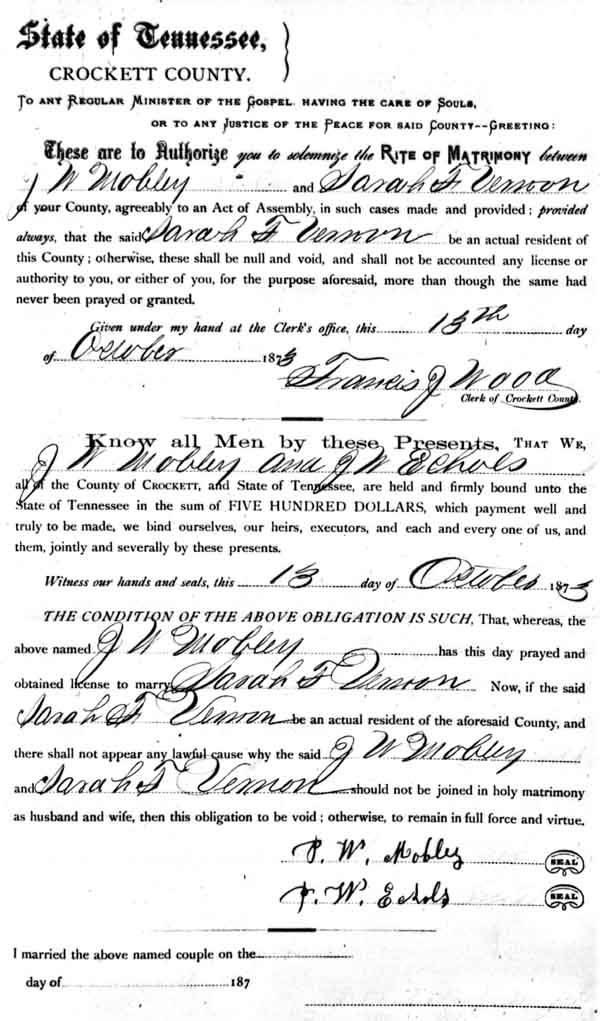 State of Tennessee,
CROCKETT COUNTY.
TO ANY REGULAR MINISTER OF THE GOSPEL, HAVING THE CARE OF SOULS,
OR TO ANY JUSTICE OF THE PEACE FOR SAID COUNTY--GREETING:
These are to Authorize you to solemnize the RITE OF MATRIMONY between
J W Mobley and Sarah F Vernon
of your County, agreeably to an Act of Assembly, in such cases made and provided; provided
always, that the said Sarah F Vernon be an actual resident of
this County; otherwise, these shall be null and void, and shall not be accounted any license or
authority to you, or either of you, for the purpose aforesaid, more than though the same had
never been prayed or granted.
Given under my hand at the Clerk's office, this 13th day
of October 1873
Francis J Wood
Clerk of Crockett County.
Know all Men by these Presents, THAT WE,
J W Mobley and J W Echols
all of the County of CROCKETT, and State of Tennessee, are held and firmly bound unto the
State of Tennessee in the sum of FIVE HUNDRED DOLLARS, which payment well and
truly to be made, we bind ourselves, our heirs, executors, and each and every one of us, and
them, jointly and severally by these presents.
Witness our hands and seals, this 13 day of October 1873
THE CONDITION OF THE ABOVE OBLIGATION IS SUCH, That, whereas, the
above named J W Mobley has this day prayed and
obtained license to marry Sarah F Vernon Now, if the said
Sarah F Vernon be an actual resident of the aforesaid County, and
there shall not appear any lawful cause why the said J W Mobley
and Sarah F Vernon should not be joined in holy matrimony
as husband and wife, then this obligation to be void; otherwise, to remain in full force and virtue.
W. Mobley SEAL
W. Echols SEAL
I married the above named couple on the
day of 187